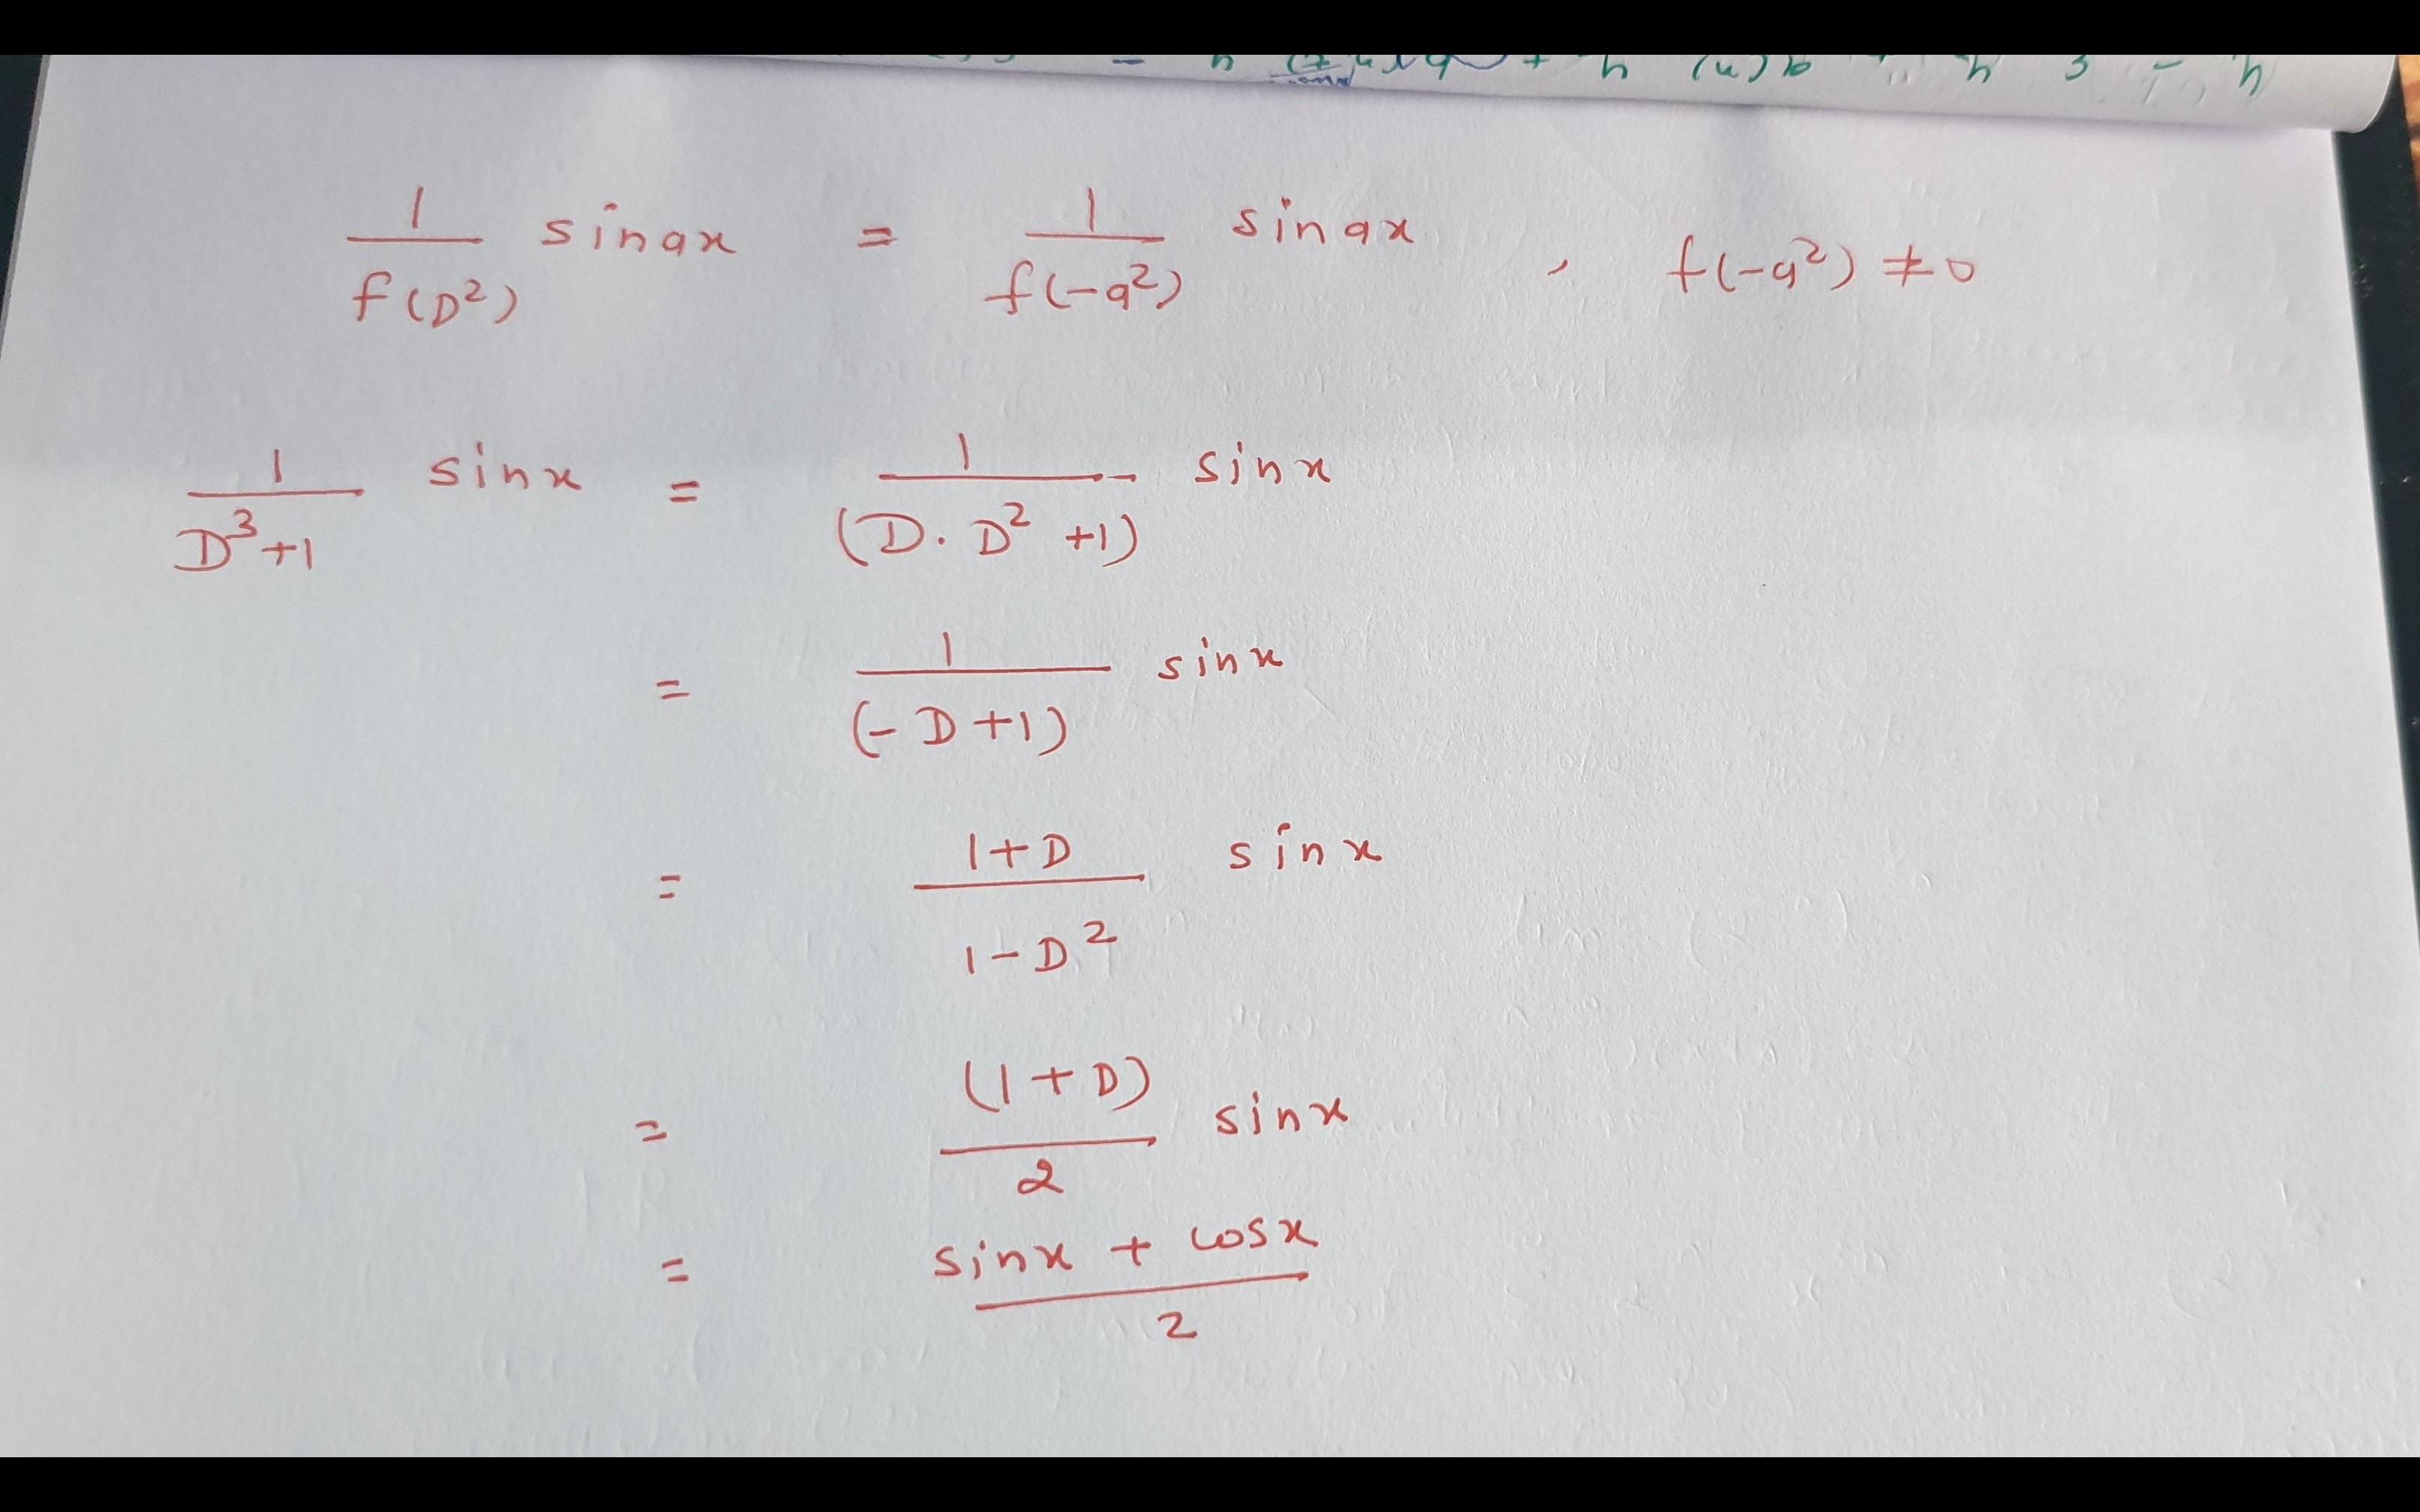 1/f(D²) sinax = 1/f(-a²) sinax , f(-a²) ≠ 0
1/D³+1 sinx = 1/(D. D² +1) sinx
= 1/(-D+1) sinx
= 1+D/1-D² sinx
= (1+D)/2 sinx
= sinx + cosx/2